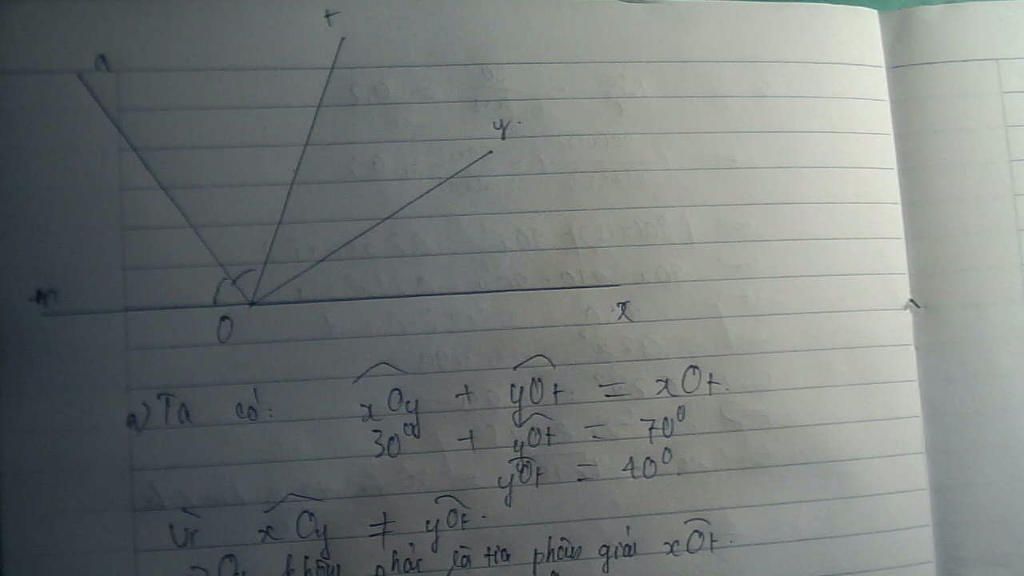 t
a
y
m
O
x
a) Ta có: xOy + yOt = xOt.
30⁰ + yOt = 70⁰
yOt = 40⁰
Vì xOy ≠ yOt.
phải là tia phân giác xOt.